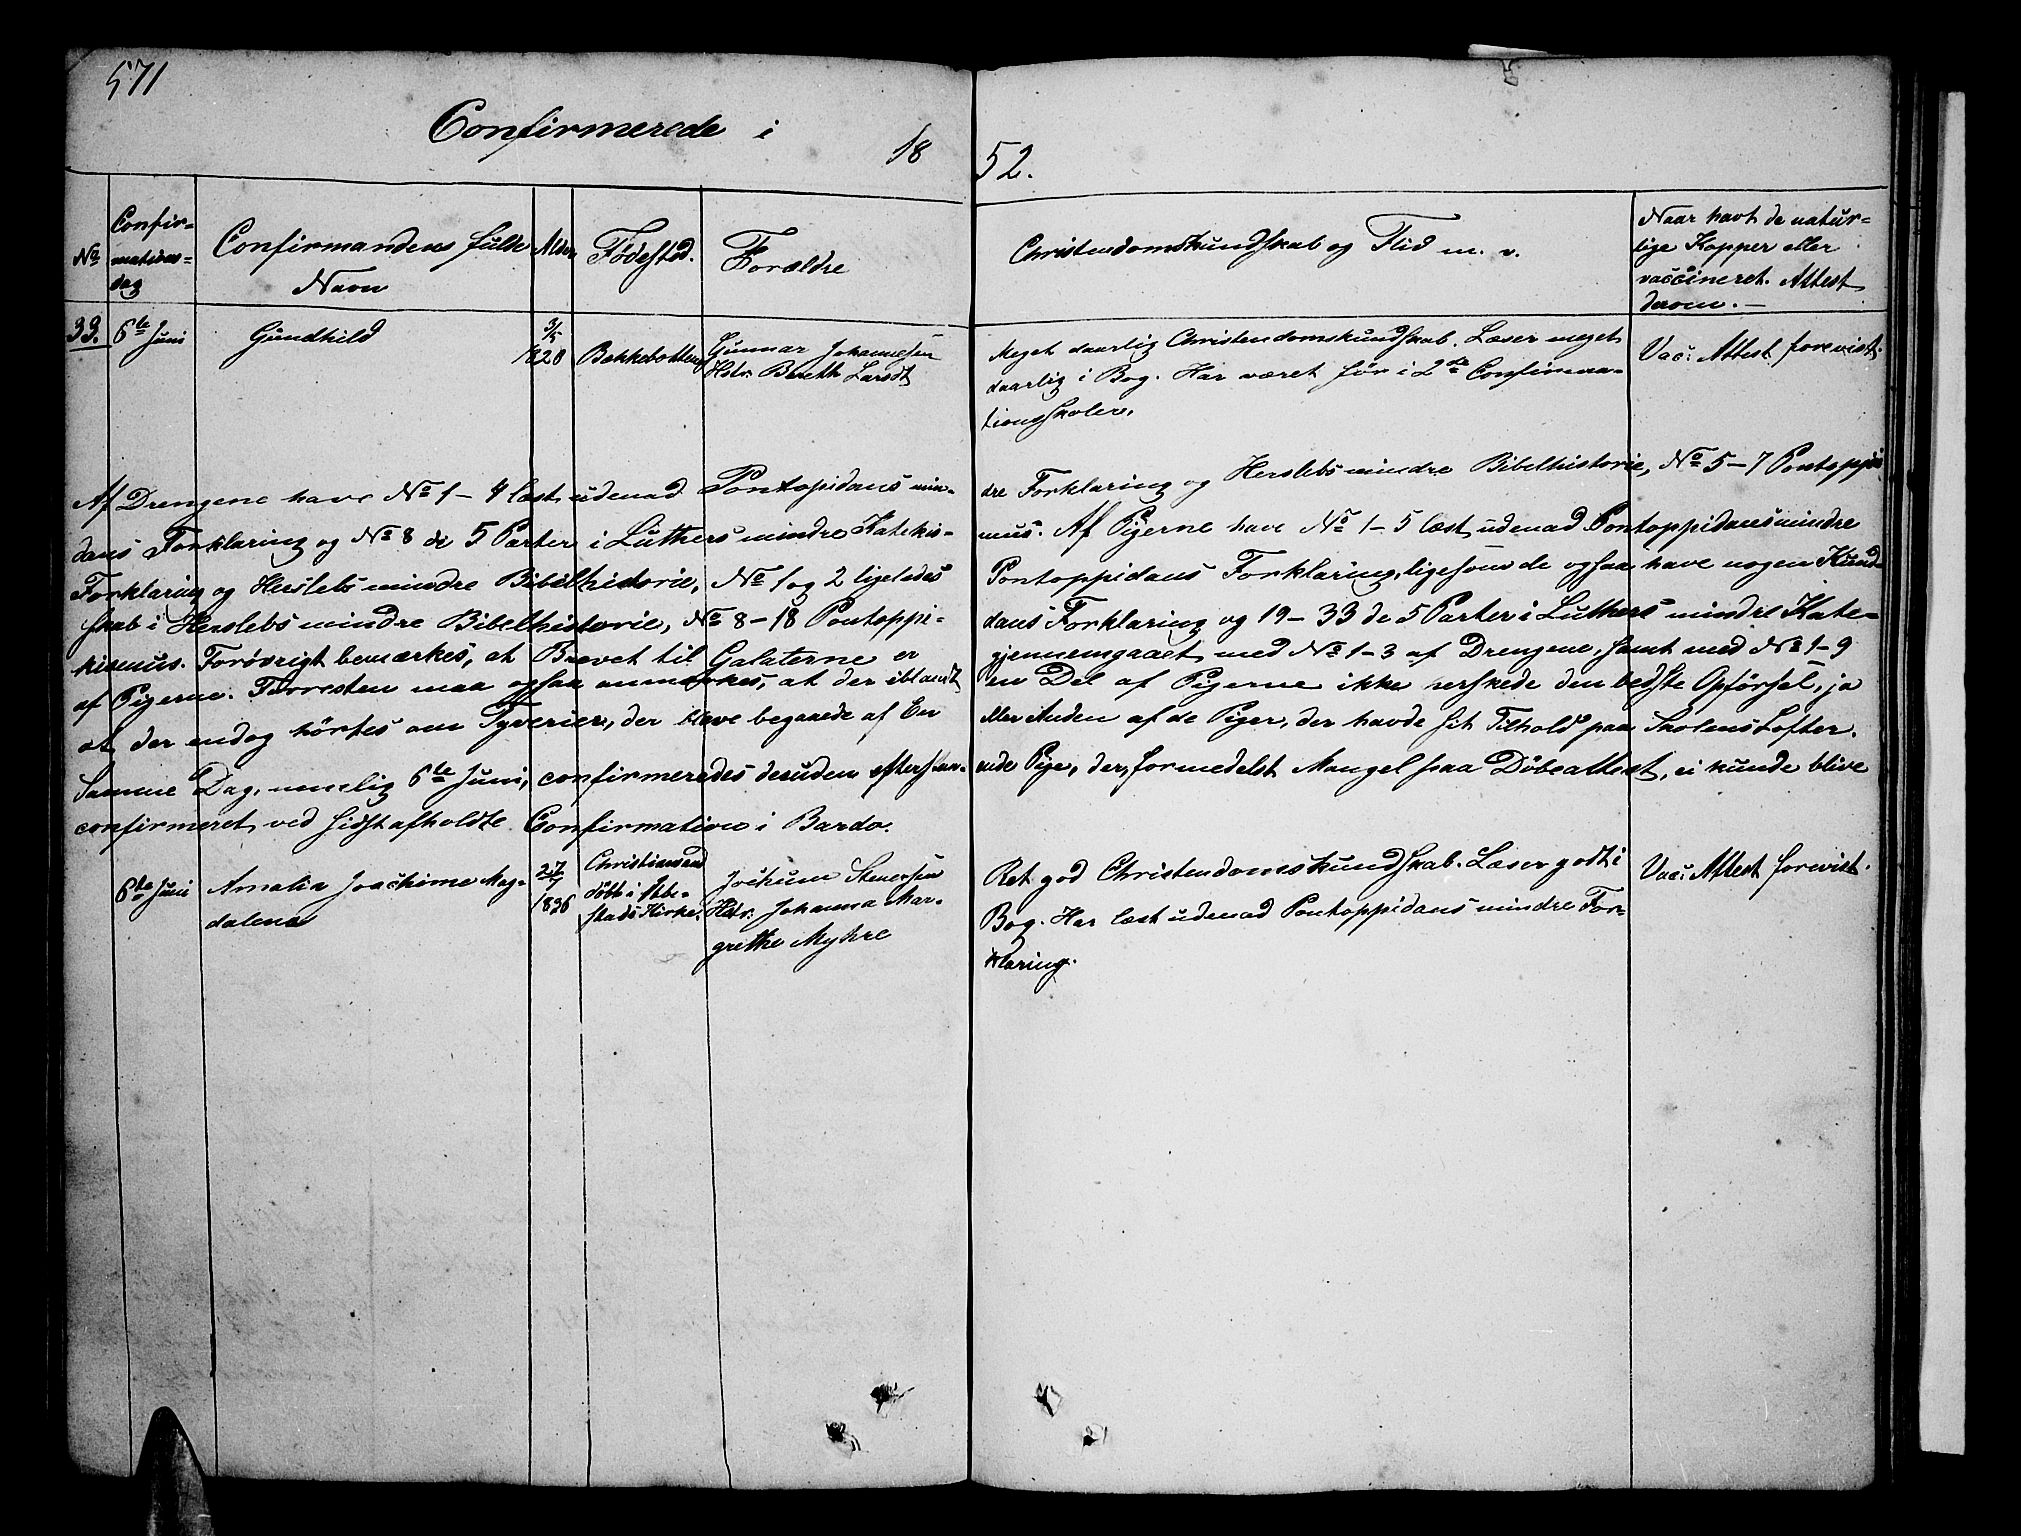 571
Confirmerede i 18 52.
No
Confir-
mations-
dag
Confirmandens fulde
Navn
Alder
Födested.
Forældre
Christendomskundskab og Flid m. v.
Naar havt de natur-
lige Kopper eller
vaccineret. Attest
derom. —
33. 6te Juni Gundhild
Bækkebotten
Gunnar Johannesen
Hstr. Bereth Larsdt
Meget daarlig Christendomskundskab. Læser meget
daarlig i Bog. Har været før i 2de Confirma-
tionsskoler.
Vac: Attest forevist.
Af Drengene have No 1-4 læst udenad Pontopidans min- dre Forklaring og Herslebs mindre Bibelhistorie, No 5-7 Pontoppi-
dans Forklaring og No 8 de 5 Parter i Luthers mindre Katekis- mus. Af Pigerne have No 1-5 læst udenad Pontoppidans mindre
Forklaring og Herslebs mindre Bibelhistorie, No 1 og 2 ligeledes Pontoppidans Forklaring, ligesom de ogsaa have nogen Kund-
skab i Herslebs mindre Bibelhistorie, No 8-18 Pontoppi- dans Forklaring og 19-33 de 5 Parter i Luthers mindre Kate-
kismus. Forøvrigt bemærkes, at Brevet til Galaterne er gjennemgaaet med No 1-3 af Drengene, samt med No 1-9
af Pigerne. Forresten maa ogsaa anmærkes, at der iblandt en Del af Pigerne ikke herskede den bedste Opførsel, ja
at der endog hörtes om Tyverier, der bleve begaaede af En eller Anden af de Piger, der havde sit Tilhold paa Skolens Lofter.
Samme Dag, nemelig 6te Juni, confirmeredes desuden efterstaa- ende Pige, der, formedelst Mangel paa Döbeattest, ei kunde blive
confirmeret ved sidst afholdte Confirmation i Bardo.
6te Juni
Amalia Joachime Mag-
dalena
27/7
1836
Christiansand
döbt i Ibe-
stads Kirke.
Jochum Steensen
Hstr. Johanna Mar-
grethe Myhre
Ret god Christendomskundskab. Læser godt i
Bog. Har læst udenad Pontoppidans mindre For-
klaring.
Vac: Attest forevist.